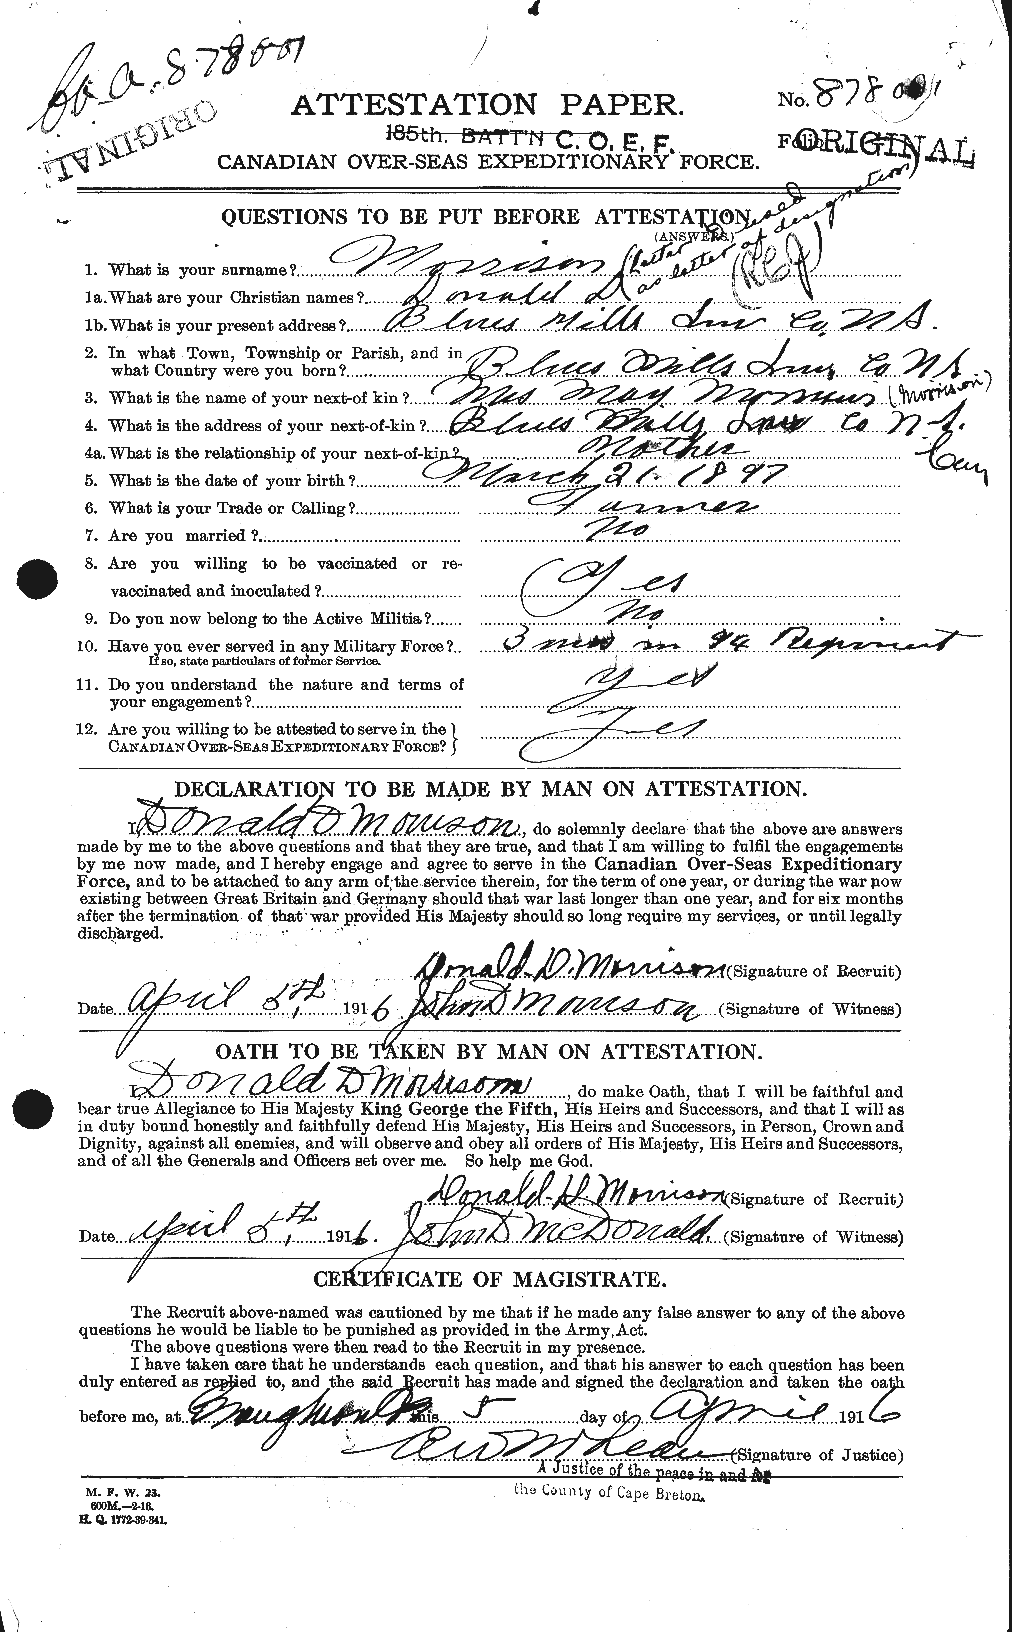 Co. A. 878001
ORIGINAL
ATTESTATION PAPER.
No. 878001
185th. BATT'N C. O. E. F.
Folio
ORIGINAL
CANADIAN OVER-SEAS EXPEDITIONARY FORCE.
QUESTIONS TO BE PUT BEFORE ATTESTATION.
(ANSWERS.)
(Letter D used
as letter of designation)
1. What is your surname?..... Morrison
1a. What are your Christian names?..... Donald D
1b. What is your present address?..... Blues Mills Inv Co, N S.
2. In what Town, Township or Parish, and in
what Country were you born?..... Blues Mills Inv Co N S
3. What is the name of your next-of kin?..... Mrs May Morrison (Morrison)
4. What is the address of your next-of-kin?..... Blues Mills Inv Co N.S.
Can
4a. What is the relationship of your next-of-kin?..... Mother
5. What is the date of your birth?..... March 21. 1897
6. What is your Trade or Calling?..... Farmer
7. Are you married?..... No
8. Are you willing to be vaccinated or re-
vaccinated and inoculated?..... Yes
9. Do you now belong to the Active Militia?..... No
10. Have you ever served in any Military Force?.. 3 mos in 94 Regiment
If so, state particulars of former Service.
11. Do you understand the nature and terms of
your engagement?..... Yes
12. Are you willing to be attested to serve in the
CANADIAN OVER-SEAS EXPEDITIONARY FORCE? Yes
DECLARATION TO BE MADE BY MAN ON ATTESTATION.
I, Donald D Morrison, do solemnly declare that the above are answers
made by me to the above questions and that they are true, and that I am willing to fulfil the engagements
by me now made, and I hereby engage and agree to serve in the Canadian Over-Seas Expeditionary
Force, and to be attached to any arm of the service therein, for the term of one year, or during the war now
existing between Great Britain and Germany should that war last longer than one year, and for six months
after the termination of that war provided His Majesty should so long require my services, or until legally
discharged.
Donald. D. Morrison (Signature of Recruit)
Date April 5th, 1916 John D Morrison (Signature of Witness)
OATH TO BE TAKEN BY MAN ON ATTESTATION.
I, Donald D Morrison, do make Oath, that I will be faithful and
bear true Allegiance to His Majesty King George the Fifth, His Heirs and Successors, and that I will as
in duty bound honestly and faithfully defend His Majesty, His Heirs and Successors, in Person, Crown and
Dignity, against all enemies, and will observe and obey all orders of His Majesty, His Heirs and Successors,
and of all the Generals and Officers set over me. So help me God.
Donald. D. Morrison (Signature of Recruit)
Date April 5th, 1916. John D McDonald. (Signature of Witness)
CERTIFICATE OF MAGISTRATE.
The Recruit above-named was cautioned by me that if he made any false answer to any of the above
questions he would be liable to be punished as provided in the Army Act.
The above questions were then read to the Recruit in my presence.
I have taken care that he understands each question, and that his answer to each question has been
duly entered as replied to, and the said Recruit has made and signed the declaration and taken the oath
before me, at Broughton this 5 day of April 1916
McLean (Signature of Justice)
A Justice of the peace in and for
the County of Cape Breton.
M. F. W. 23.
600M.—2-16.
H. Q. 1772-39-841.